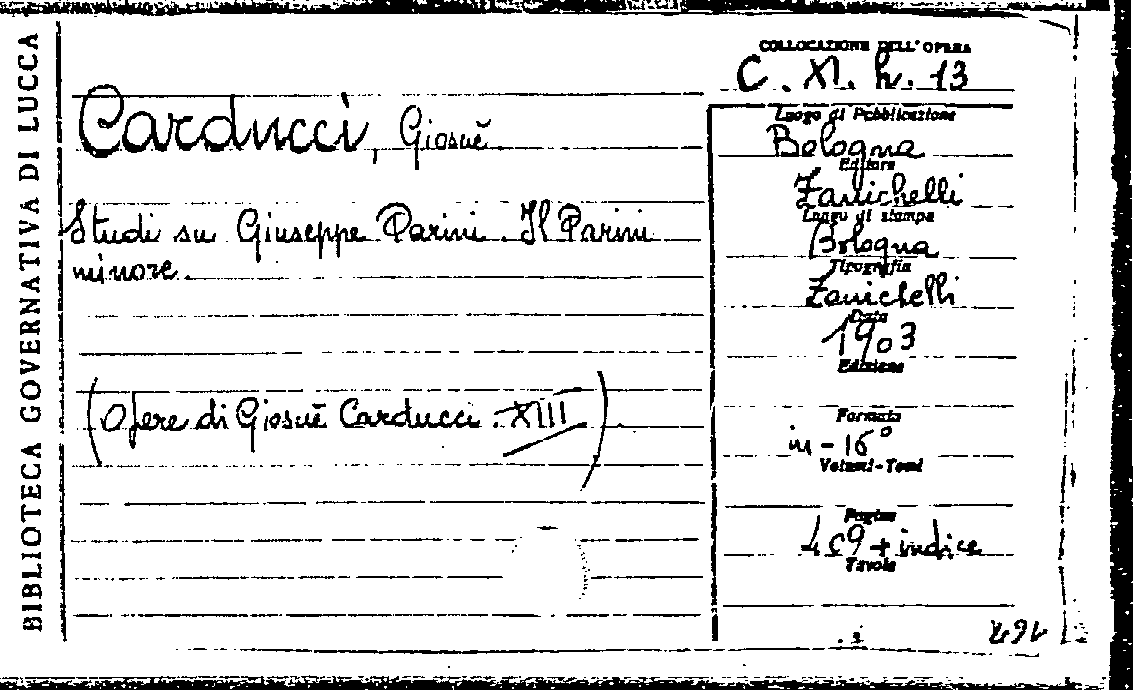 BIBLIOTECA GOVERNATIVA DI LUCCA
Carducci, Giosuè
Studi su Giuseppe Parini. Il Parini
minore.
(Opere di Giosuè Carducci. XIII)
COLLOCAZIONE DELL'OPERA
C. XI. h. 13
Luogo di Pubblicazione
Bologna
Editore
Zanichelli
Luogo di stampa
Bologna
Tipografia
Zanichelli
Data
1903
Edizione
Formato
in-16°
Volumi-Tomi
Pagine
+ indice
Tavole